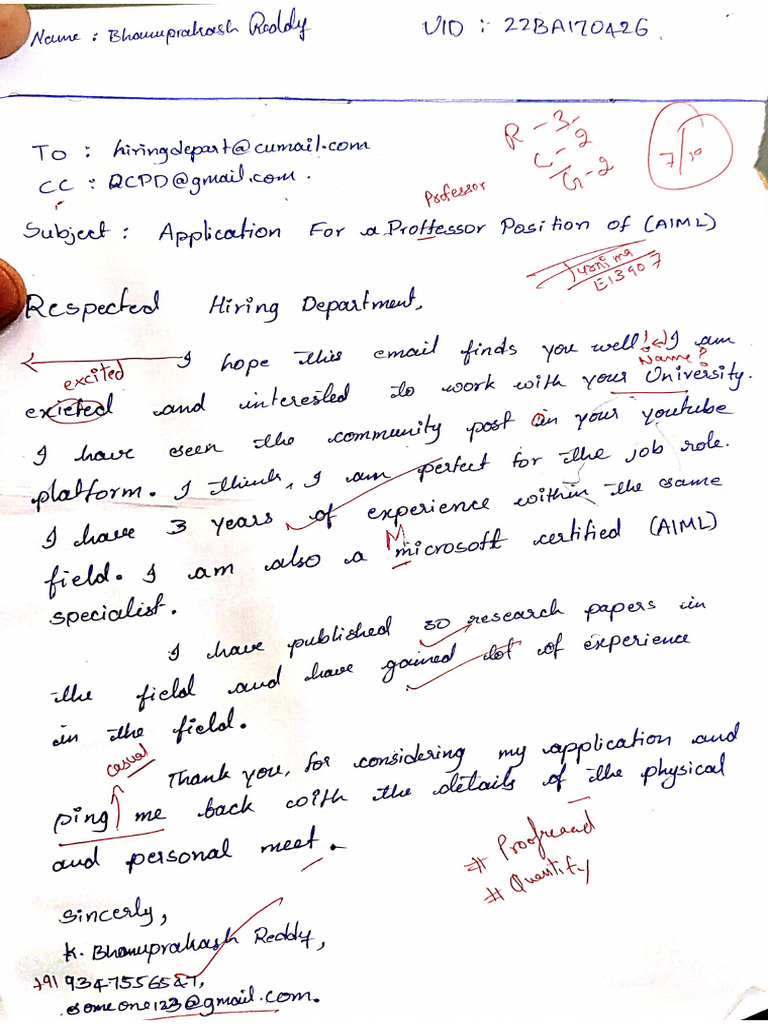 Name : Bhanuprakash Reddy UID :- 22BAI70426
To : hiringdepart@cumail.com
R - 3
C - 2
G - 2
7/10
CC : QCPD@gmail.com .
Professor
Subject : Application For a Proffessor Position of (AIML)
E13907
Respected Hiring Department,
I hope this email finds you well! I am
excited
Name?
exicted and interested to work with your University.
I have seen the community post on your youtube
platform. I think, I am perfect for the job role.
I have 3 years of experience within the same
M
field. I am also a microsoft certified (AIML)
specialist.
I have published 30 research papers in
the field and have gained lot of experience
in the field.
casual
Thank you, for considering my application and
ping me back with the details of the physical
and personal meet.
# Proofreaed
# Quantify
Sincerly,
K. Bhanuprakash Reddy,
+91 9347556547,
someone123@gmail.com.